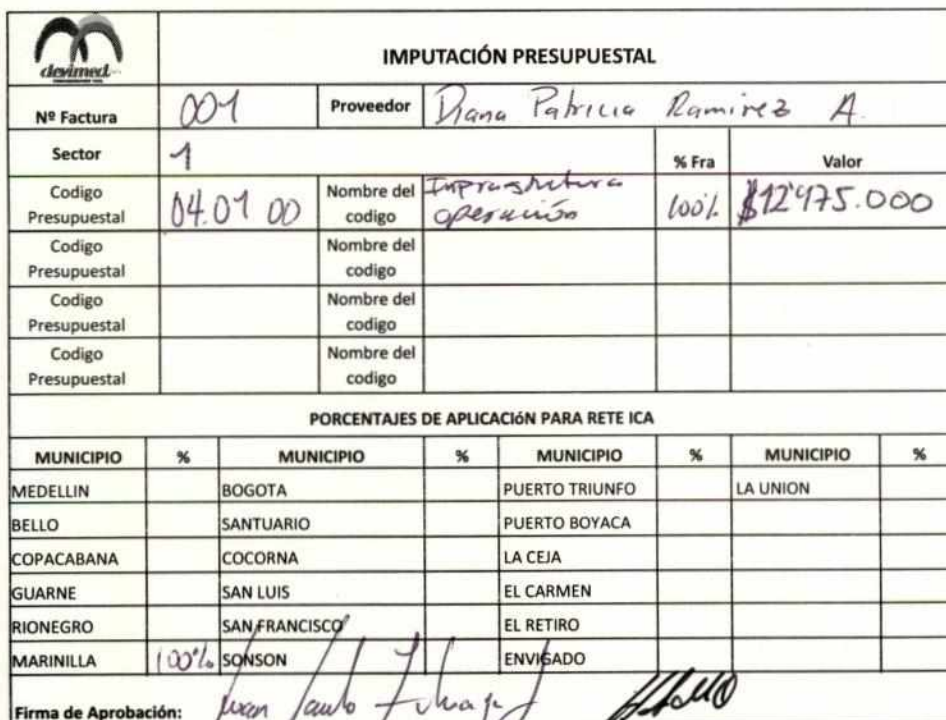 devimed
IMPUTACIÓN PRESUPUESTAL
Nº Factura 001 Proveedor Diana Patricia Ramirez A.
Sector 1 % Fra Valor
Codigo Presupuestal 04.01 00 Nombre del codigo Infraestructura operación 100% $12'475.000
Codigo Presupuestal Nombre del codigo
Codigo Presupuestal Nombre del codigo
Codigo Presupuestal Nombre del codigo
PORCENTAJES DE APLICACIÓN PARA RETE ICA
MUNICIPIO % MUNICIPIO % MUNICIPIO % MUNICIPIO %
MEDELLIN BOGOTA PUERTO TRIUNFO LA UNION
BELLO SANTUARIO PUERTO BOYACA
COPACABANA COCORNA LA CEJA
GUARNE SAN LUIS EL CARMEN
RIONEGRO SAN FRANCISCO EL RETIRO
MARINILLA 100% SONSON ENVIGADO
Firma de Aprobación: Juan